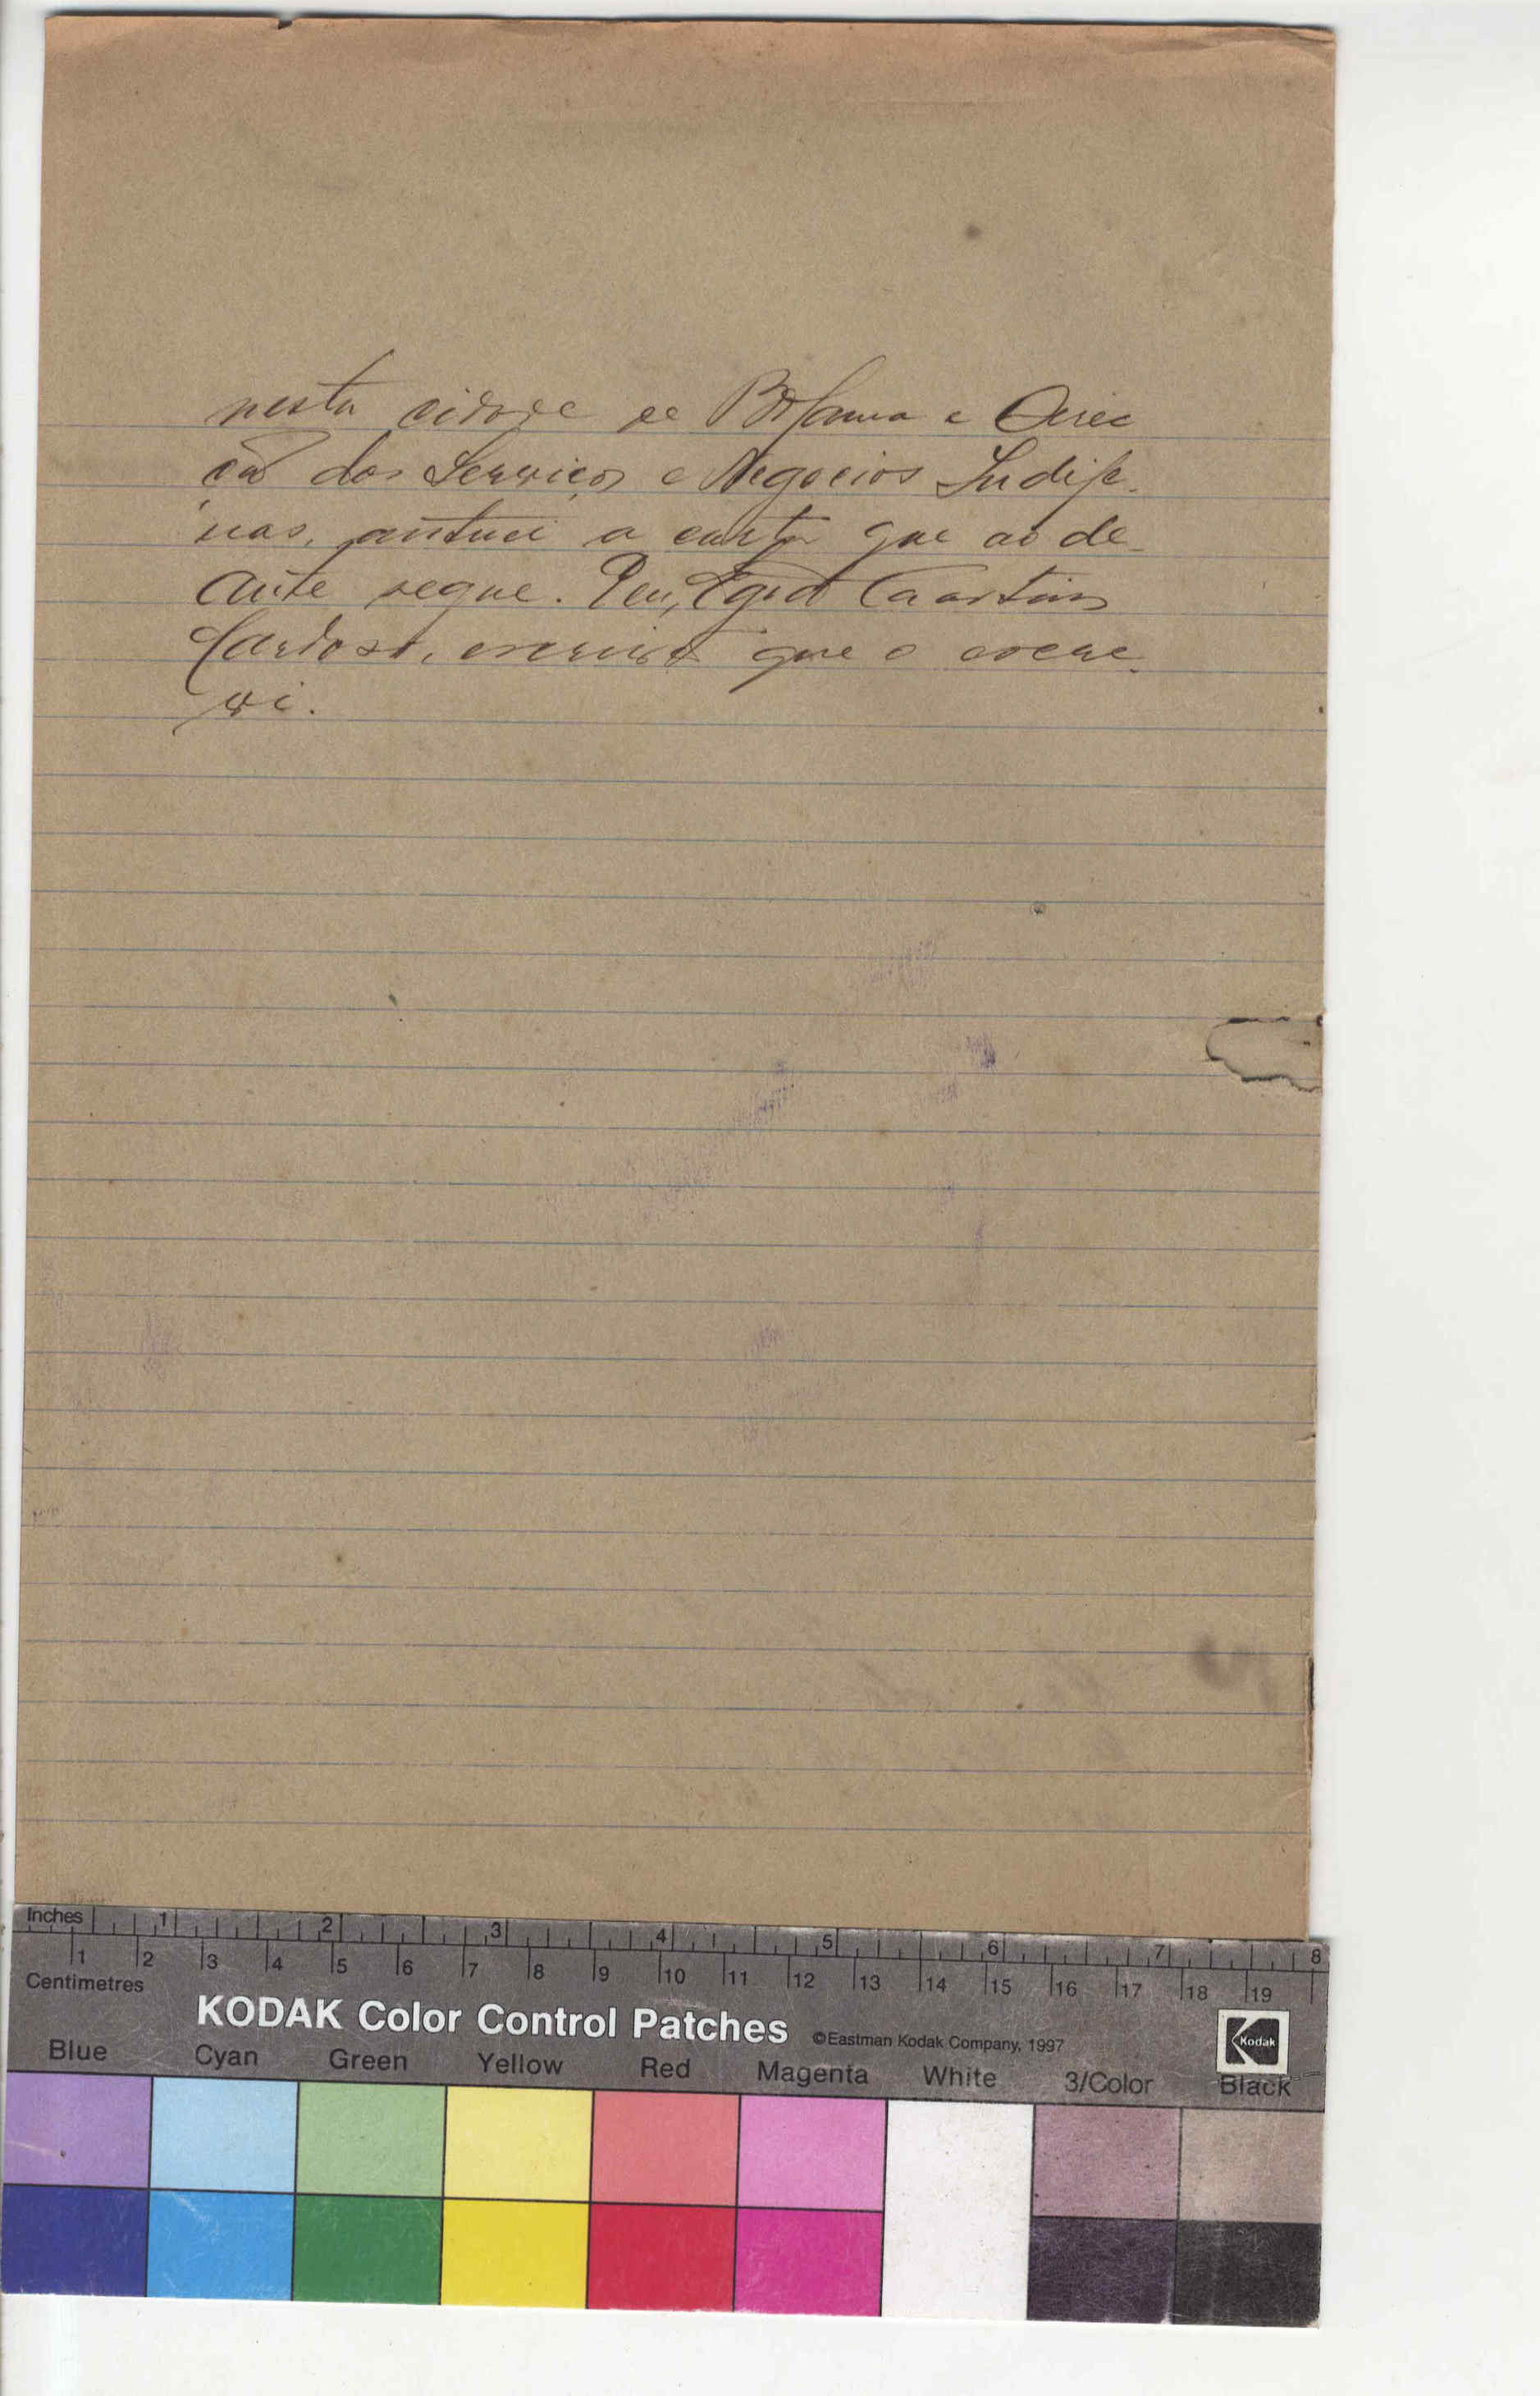 nesta cidade de Bolama e Direc
ção dos Serviços e Negocios Indige-
nas, autuei a carta que ao de-
ante segue. Eu, Martins
Cardoso, escrivão que o escre-
vi.
Inches 1 2 3 4 5 6 7 8
1 2 3 4 5 6 7 8 9 10 11 12 13 14 15 16 17 18 19
Centimetres
KODAK Color Control Patches ©Eastman Kodak Company, 1997 Kodak
Blue Cyan Green Yellow Red Magenta White 3/Color Black